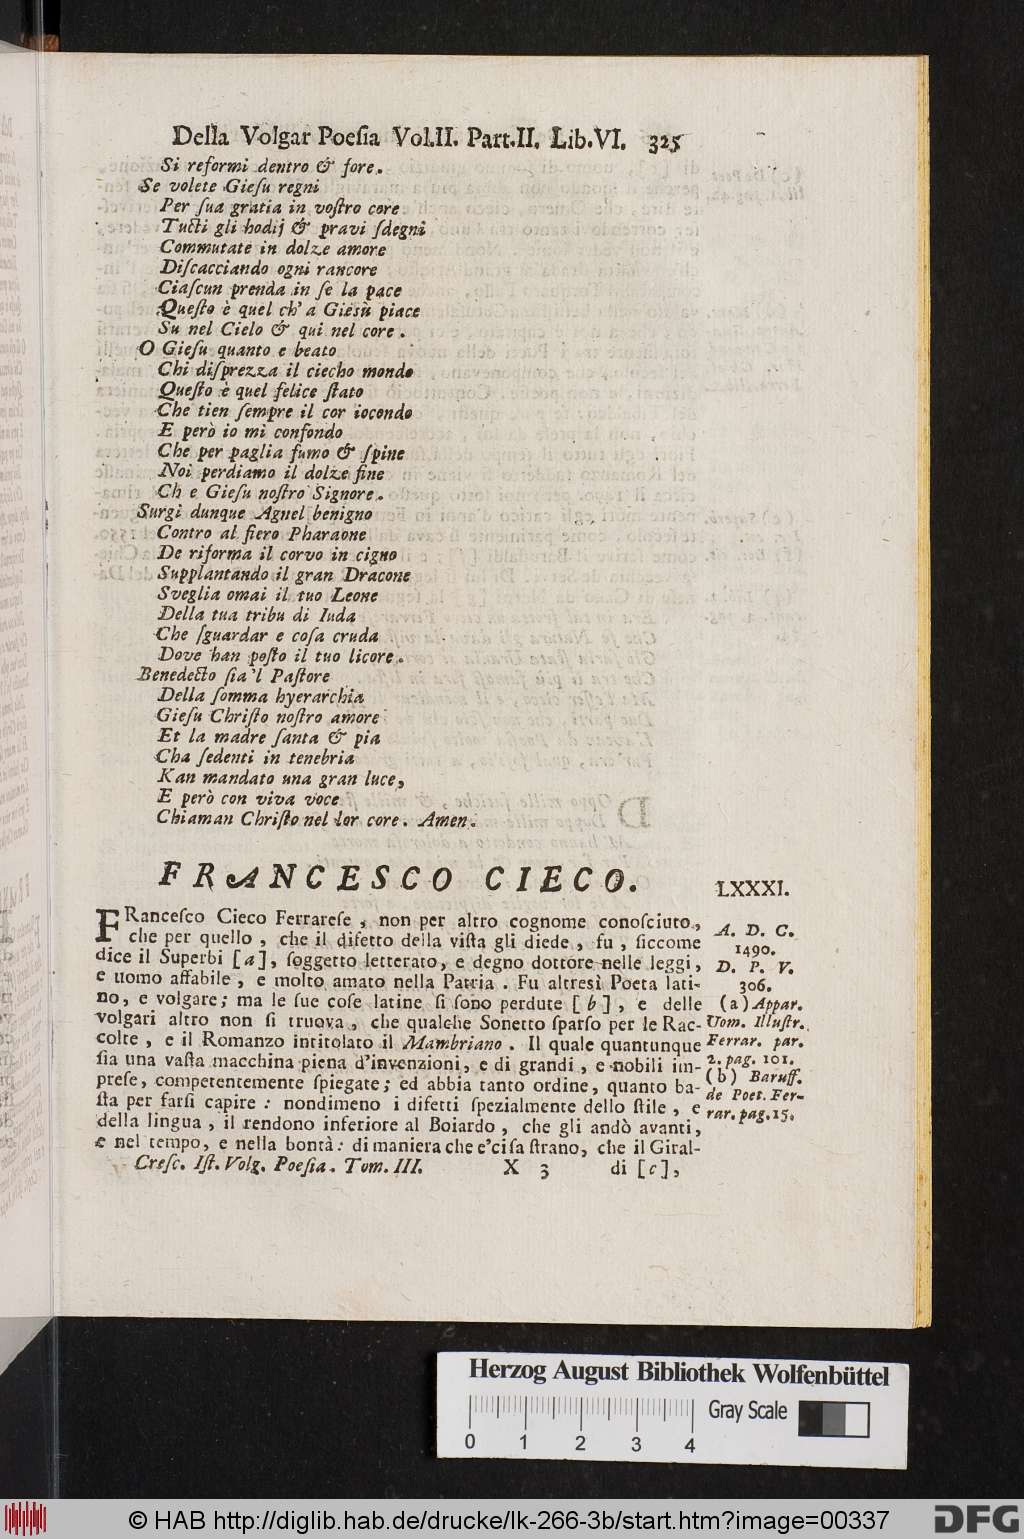 Della Volgar Poesia Vol.II. Part.II. Lib.VI. 325
Si reformi dentro & fore.
Se volete Giesu regni
Per sua gratia in vostro core
Tutti gli hodij & pravi sdegni
Commutate in dolze amore
Discacciando ogni rancore
Ciascun prenda in se la pace
Questo è quel ch' a Giesù piace
Su nel Cielo & qui nel core.
O Giesu quanto e beato
Chi disprezza il ciecho mondo
Questo è quel felice stato
Che tien sempre il cor iocondo
E però io mi confondo
Che per paglia fumo & spine
Noi perdiamo il dolze fine
Ch e Giesu nostro Signore.
Surgi dunque Agnel benigno
Contro al fiero Pharaone
De riforma il corvo in cigno
Supplantando il gran Dracone
Sveglia omai il tuo Leone
Della tua tribu di Iuda
Che sguardar e cosa cruda
Dove han posto il tuo licore.
Benedetto sia 'l Pastore
Della somma hyerarchia
Giesu Christo nostro amore
Et la madre santa & pia
Cha sedenti in tenebria
Kan mandato una gran luce,
E però con viva voce
Chiaman Christo nel lor core. Amen.
FRANCESCO CIECO.
LXXXI.
FRancesco Cieco Ferrarese, non per altro cognome conosciuto,
che per quello, che il difetto della vista gli diede, fu, siccome
dice il Superbi [a], soggetto letterato, e degno dottore nelle leggi,
e uomo affabile, e molto amato nella Patria. Fu altresì Poeta lati-
no, e volgare; ma le sue cose latine si sono perdute [b], e delle
volgari altro non si truova, che qualche Sonetto sparso per le Rac-
colte, e il Romanzo intitolato il Mambriano. Il quale quantunque
sia una vasta macchina piena d'invenzioni, e di grandi, e nobili im-
prese, competentemente spiegate; ed abbia tanto ordine, quanto ba-
sta per farsi capire: nondimeno i difetti spezialmente dello stile, e
della lingua, il rendono inferiore al Boiardo, che gli andò avanti,
e nel tempo, e nella bontà: di maniera che e' ci sa strano, che il Giral-
A. D. C.
1490.
D. P. V.
306.
(a) Appar.
Uom. Illustr.
Ferrar. par.
2. pag. 101.
(b) Baruff.
de Poet. Fer-
rar. pag. 15.
Cresc. Ist. Volg. Poesia. Tom. III. X 3 di [c],
Herzog August Bibliothek Wolfenbüttel
Gray Scale
0 1 2 3 4
© HAB http://diglib.hab.de/drucke/lk-266-3b/start.htm?image=00337
DFG